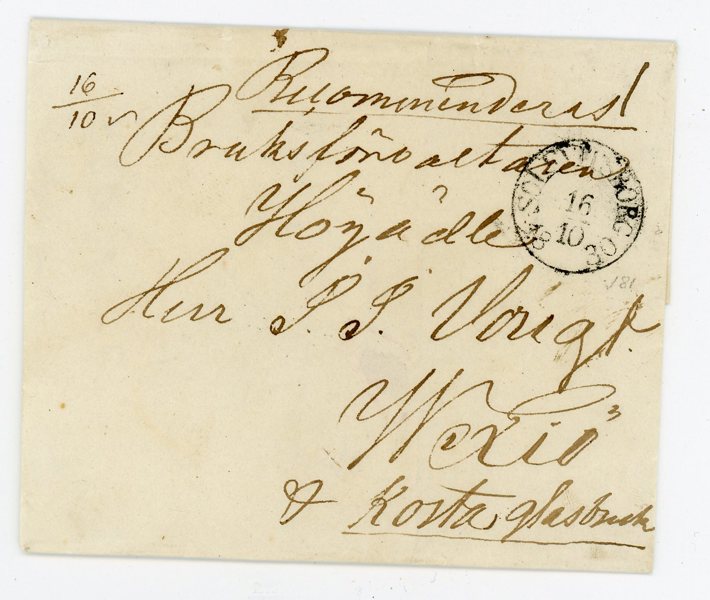 16
10
Recommenderas!
Bruksförvaltaren
Höyädle
Herr J. J. Vorigt
Wexiö
& Kosta glasbruk
SÖLVITSBORG
16
10
1830
√81